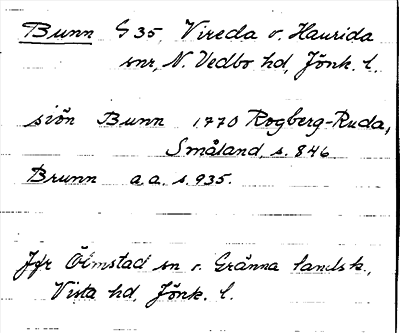 Bunn G 35, Vireda o. Haurida
snr, N. Vedbo hd, Jönk. l.
sjön Bunn 1770 Rogberg-Ruda,
Småland, s. 846
Brunn a.a. s. 935.
Jfr Ölmstad sn o. Gränna landsk.,
Vista hd, Jönk. l.